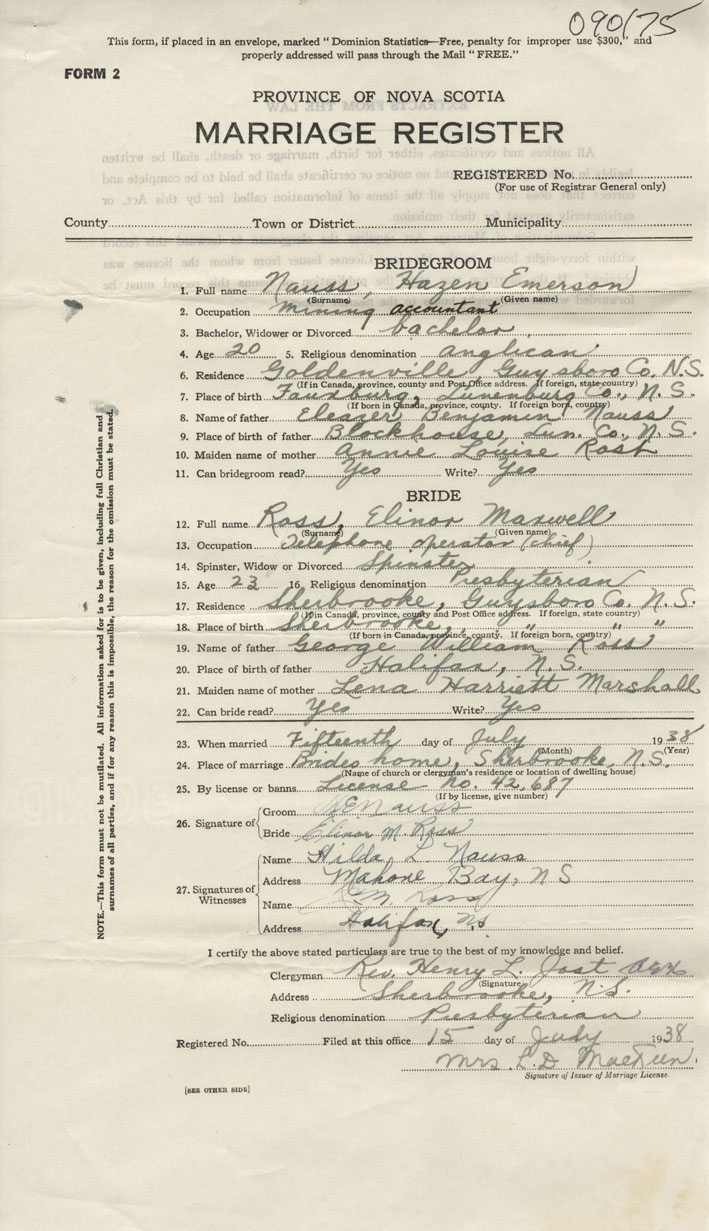 090175
This form, if placed in an envelope, marked "Dominion Statistics—Free, penalty for improper use $300," and
properly addressed will pass through the Mail "FREE."
FORM 2
PROVINCE OF NOVA SCOTIA
MARRIAGE REGISTER
REGISTERED No.
(For use of Registrar General only)
County Town or District Municipality
BRIDEGROOM
1. Full name Nauss, Hazen Emerson
(Surname) (Given name)
2. Occupation mining accountant
3. Bachelor, Widower or Divorced bachelor
4. Age 20 5. Religious denomination Anglican
6. Residence Goldenville, Guysboro Co. N.S.
(If in Canada, province, county and Post Office address. If foreign, state country)
7. Place of birth Fauxburg, Lunenburg Co., N.S.
(If born in Canada, province, county. If foreign born, country)
8. Name of father Eleazer Benjamin Nauss
9. Place of birth of father Blockhouse, Lun. Co., N.S.
10. Maiden name of mother Annie Louise
11. Can bridegroom read? Yes Write? Yes
BRIDE
12. Full name Ross, Elinor Maxwell
(Surname) (Given name)
13. Occupation Telephone operator (chief)
14. Spinster, Widow or Divorced Spinster
15. Age 23 16. Religious denomination Presbyterian
17. Residence Sherbrooke, Guysboro Co. N.S.
(If in Canada, province, county and Post Office address. If foreign, state country)
18. Place of birth Sherbrooke, " " "
(If born in Canada, province, county. If foreign born, country)
19. Name of father George William Ross
20. Place of birth of father Halifax, N.S.
21. Maiden name of mother Lena Harriett Marshall
22. Can bride read? Yes Write? Yes
23. When married Fifteenth day of July 1938
(Month) (Year)
24. Place of marriage Brides home, Sherbrooke, N.S.
(Name of church or clergyman's residence or location of dwelling house)
25. By license or banns License No. 42,687
(If by license, give number)
26. Signature of Groom HE Nauss
Bride Elinor M Ross
27. Signatures of Witnesses
Name Hilda L. Nauss
Address Mahone Bay, NS
Name M Ross
Address Halifax, NS
I certify the above stated particulars are true to the best of my knowledge and belief.
Clergyman Rev. Henry L. Jost
(Signature)
Address Sherbrooke, N.S.
Religious denomination Presbyterian
Registered No. Filed at this office 15 day of July 1938
Mrs. L. D
Signature of Issuer of Marriage License
[SEE OTHER SIDE]
NOTE.—This form must not be mutilated. All information asked for is to be given, including full Christian and
surnames of all parties, and if for any reason this is impossible, the reason for the omission must be stated.